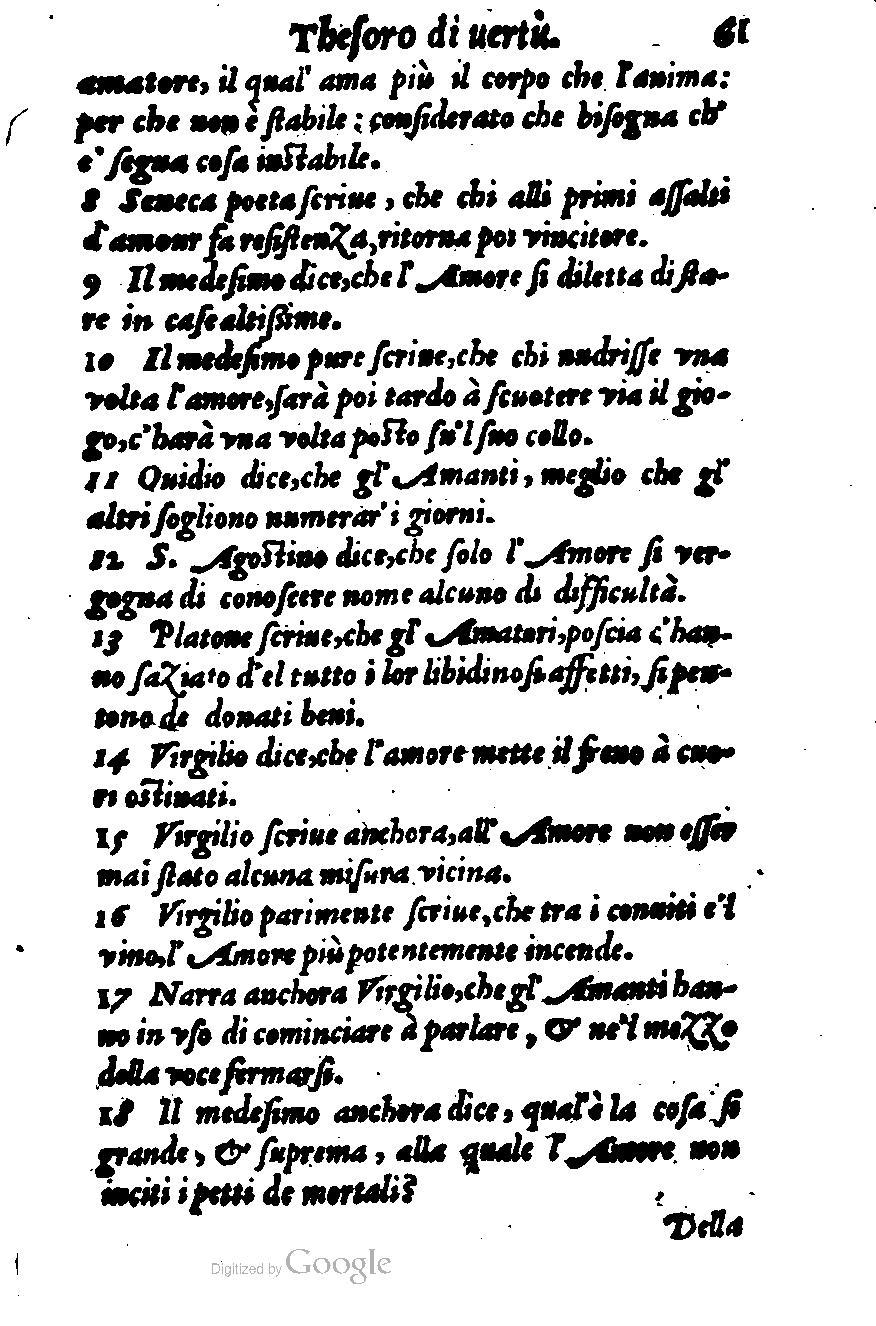 Theſoro di uertù. 61
amatore, il qual' ama più il corpo che l'anima:
per che non è ſtabile: conſiderato che biſogna ch'
e' ſegua coſa inſtabile.
8 Seneca poeta ſcriue, che chi alli primi aſſalti
d'amour fa reſiſtenza, ritorna poi vincitore.
9 Il medeſimo dice, che l' Amore ſi diletta di ſta-
re in caſe altiſsime.
10 Il medeſimo pure ſcriue, che chi nudriſſe vna
volta l'amore, ſarà poi tardo à ſcuotere via il gio-
go, c'harà vna volta poſto ſu'l ſuo collo.
11 Ouidio dice, che gl' Amanti, meglio che gl'
altri ſogliono numerar' i giorni.
12 S. Agoſtino dice, che ſolo l' Amore ſi ver-
gogna di conoſcere nome alcuno di difficultà.
13 Platone ſcriue, che gl' Amatori, poſcia c'han-
no ſaziato d'el tutto i lor libidinoſi affetti, ſi pen-
tono de donati beni.
14 Virgilio dice, che l'amore mette il freno à cuo-
ri oſtinati.
15 Virgilio ſcriue anchora, all' Amore non eſſer
mai ſtato alcuna miſura vicina.
16 Virgilio parimente ſcriue, che tra i conuiti e'l
vino, l' Amore più potentemente incende.
17 Narra anchora Virgilio, che gl' Amanti han-
no in vſo di cominciare à parlare, & ne'l mezzo
della voce fermarſi.
18 Il medeſimo anchora dice, qual'è la coſa ſi
grande, & ſuprema, alla quale l' Amore non
inciti i petti de mortali?
Della
Digitized by Google